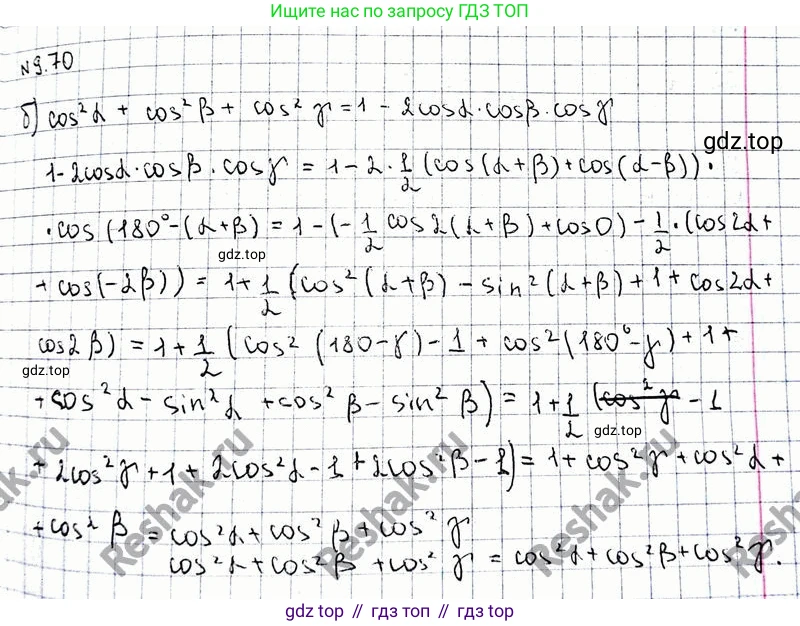 Ищите нас по запросу ГДЗ ТОП
№9.70
б) cos²α + cos²β + cos²γ = 1 - 2cosα·cosβ·cosγ
gdz.top
1-2cosα·cosβ·cosγ = 1-2·1/2(cos(α+β)+cos(α-β))·
·cos(180°-(α+β) = 1-(-1/2 cos2(α+β)+cos0)-1/2·(cos2α+
gdz.top
+cos(-2β)) = 1+1/2(cos²(α+β)-sin²(α+β)+1+cos2α+
cos2β) = 1+1/2(cos²(180-γ)-1+cos²(180°-γ)+1+
gdz.top
+cos²α-sin²α+cos²β-sin²β) = 1+1/2(cos²γ-1
gdz.top
+2cos²γ+1+2cos²α-1+2cos²β-1) = 1+cos²γ+cos²α+
+cos²β = cos²α+cos²β+cos²γ
cos²α+cos²β+cos²γ = cos²α+cos²β+cos²γ.
Reshak.ru
Reshak.ru
Reshak.ru
Reshak.ru
gdz top // гдз топ // gdz.top